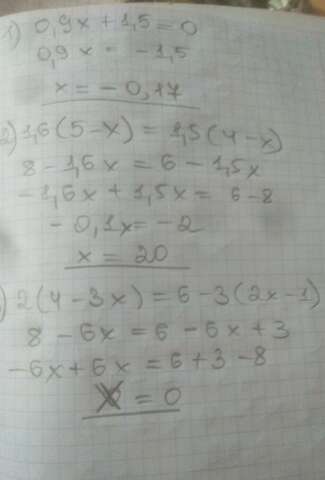 1) 0,9x + 1,5 = 0
0,9x = -1,5
x = - 0,17
2) 1,6(5-x) = 1,5(4-x)
8 - 1,6x = 6 - 1,5x
-1,6x + 1,5x = 6-8
- 0,1x = -2
x = 20
) 2(4-3x) = 6-3(2x-1)
8 - 6x = 6 - 6x + 3
-6x + 6x = 6 + 3 - 8
= 0